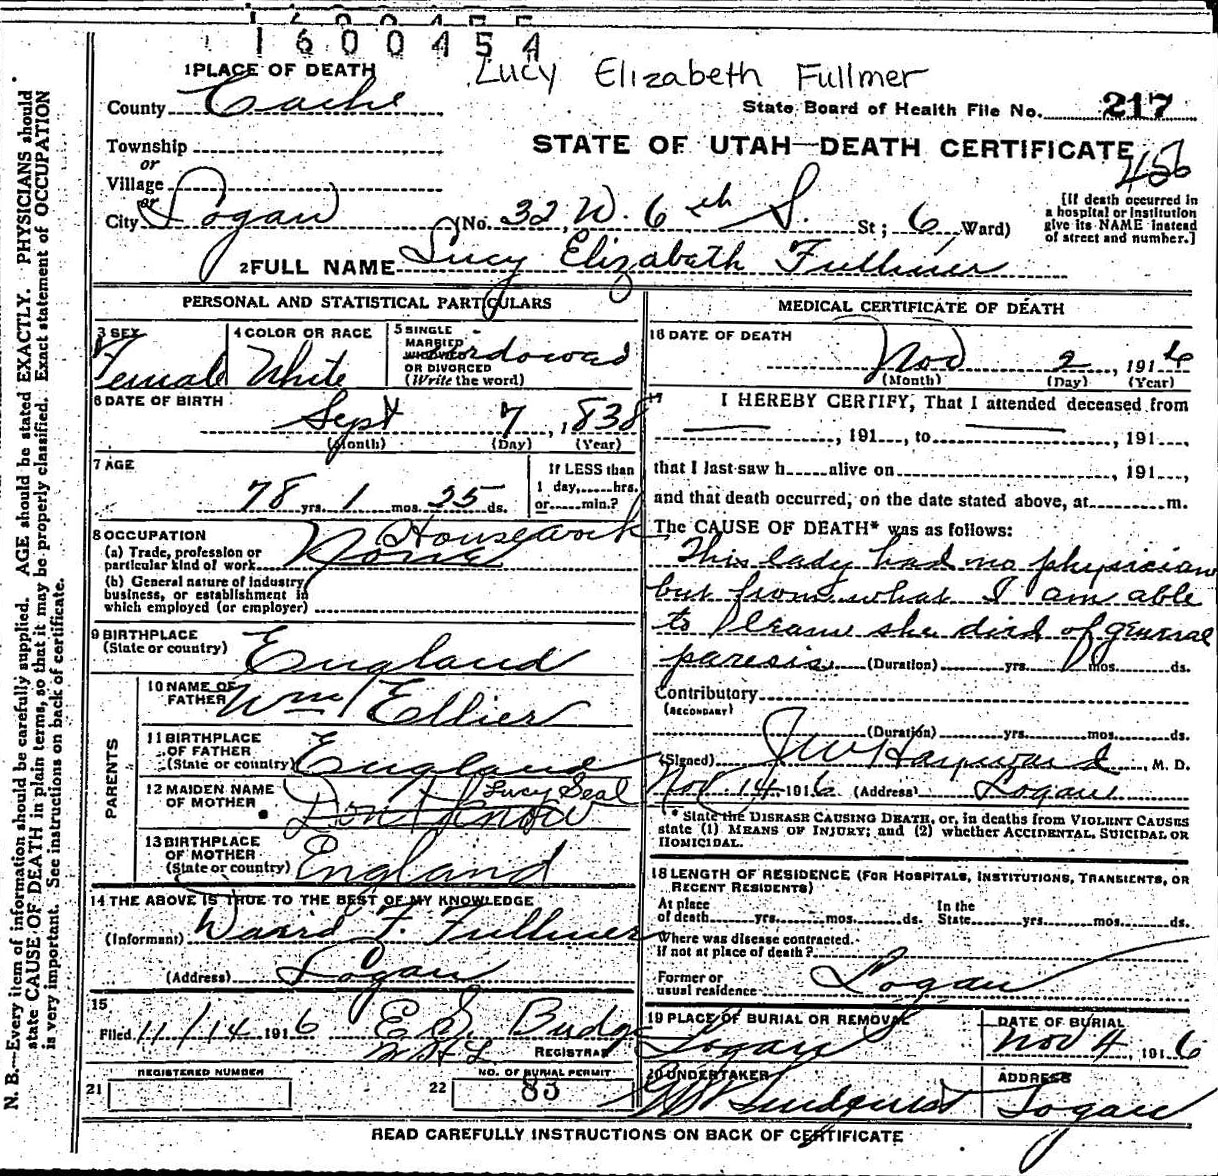 1600454
Lucy Elizabeth Fullmer
1 PLACE OF DEATH
County Cache
State Board of Health File No. 217
Township
or
Village
or
STATE OF UTAH—DEATH CERTIFICATE
456
City Logan (No. 32 W. 6th S. St; 6 Ward)
[If death occurred in
a hospital or institution
give its NAME instead
of street and number.]
2 FULL NAME Lucy Elizabeth Fullmer
PERSONAL AND STATISTICAL PARTICULARS
3 SEX
Female
4 COLOR OR RACE
White
5 SINGLE
MARRIED
WIDOWED
OR DIVORCED
(Write the word)
Widowed
6 DATE OF BIRTH
Sept 7, 1838
(Month) (Day) (Year)
7 AGE
78 yrs. 1 mos. 25 ds.
If LESS than
1 day, hrs.
or min.?
8 OCCUPATION
(a) Trade, profession or
particular kind of work None Housework
(b) General nature of industry
business, or establishment in
which employed (or employer)
9 BIRTHPLACE
(State or country) England
PARENTS
10 NAME OF
FATHER Wm Ellier
11 BIRTHPLACE
OF FATHER
(State or country) England
12 MAIDEN NAME
OF MOTHER Dont Know Lucy Seal
13 BIRTHPLACE
OF MOTHER
(State or country) England
14 THE ABOVE IS TRUE TO THE BEST OF MY KNOWLEDGE
(Informant) David F. Fullmer
(Address) Logan
15
Filed 11/14 1916 E. S. Budge
REGISTRAR
21 REGISTERED NUMBER
22 NO. OF BURIAL PERMIT
83
MEDICAL CERTIFICATE OF DEATH
16 DATE OF DEATH
Nov 2, 1916
(Month) (Day) (Year)
17 I HEREBY CERTIFY, That I attended deceased from
, 191 , to , 191 ,
that I last saw h alive on , 191 ,
and that death occurred, on the date stated above, at m.
The CAUSE OF DEATH* was as follows:
This lady had no physician
but from what I am able
to learn she died of general
paresis. (Duration) yrs. mos. ds.
Contributory
(SECONDARY)
(Duration) yrs. mos. ds.
(Signed) J W Hayward, M. D.
Nov 14 1916 (Address) Logan
* State the DISEASE CAUSING DEATH, or, in deaths from VIOLENT CAUSES
state (1) MEANS OF INJURY; and (2) whether ACCIDENTAL, SUICIDAL OR
HOMICIDAL.
18 LENGTH OF RESIDENCE (FOR HOSPITALS, INSTITUTIONS, TRANSIENTS, OR
RECENT RESIDENTS)
At place
of death yrs. mos. ds.
In the
State yrs. mos. ds.
Where was disease contracted.
if not at place of death?
Former or
usual residence Logan
19 PLACE OF BURIAL OR REMOVAL
Logan
DATE OF BURIAL
Nov 4, 1916
20 UNDERTAKER
Lindquist
ADDRESS
Logan
READ CAREFULLY INSTRUCTIONS ON BACK OF CERTIFICATE
N. B.—Every item of information should be carefully supplied. AGE should be stated EXACTLY. PHYSICIANS should
state CAUSE OF DEATH in plain terms, so that it may be properly classified. Exact statement of OCCUPATION
is very important. See instructions on back of certificate.